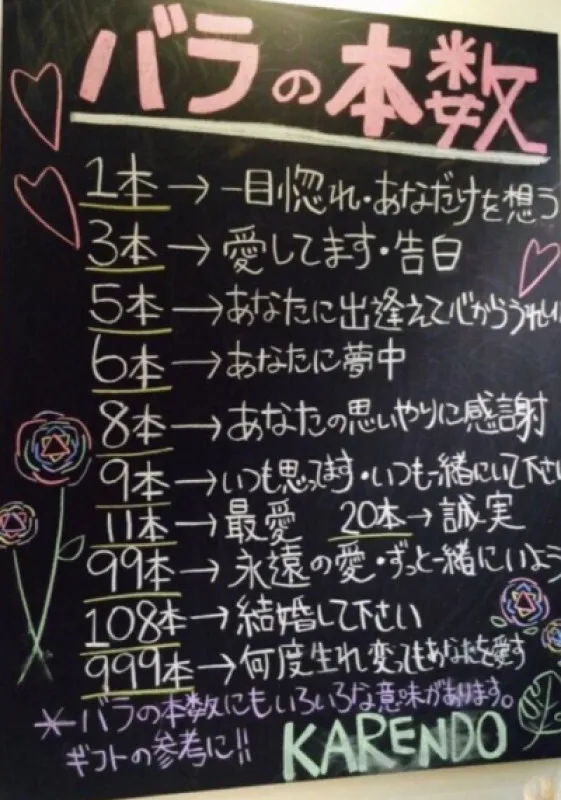 バラの本数
1本→一目惚れ・あなだけを想う
3本→愛してます・告白
5本→あなたに出逢えて心からうれしい
6本→あなたに夢中
8本→あなたの思いやりに感謝
9本→いつも思ってます・いつも一緒にいて下さい
11本→最愛 20本→誠実
99本→永遠の愛・ずっと一緒にいよう
108本→結婚して下さい
999本→何度生れ変ってもあなたを愛す
*バラの本数にもいろいろな意味があります。
ギフトの参考に!!
KARENDO